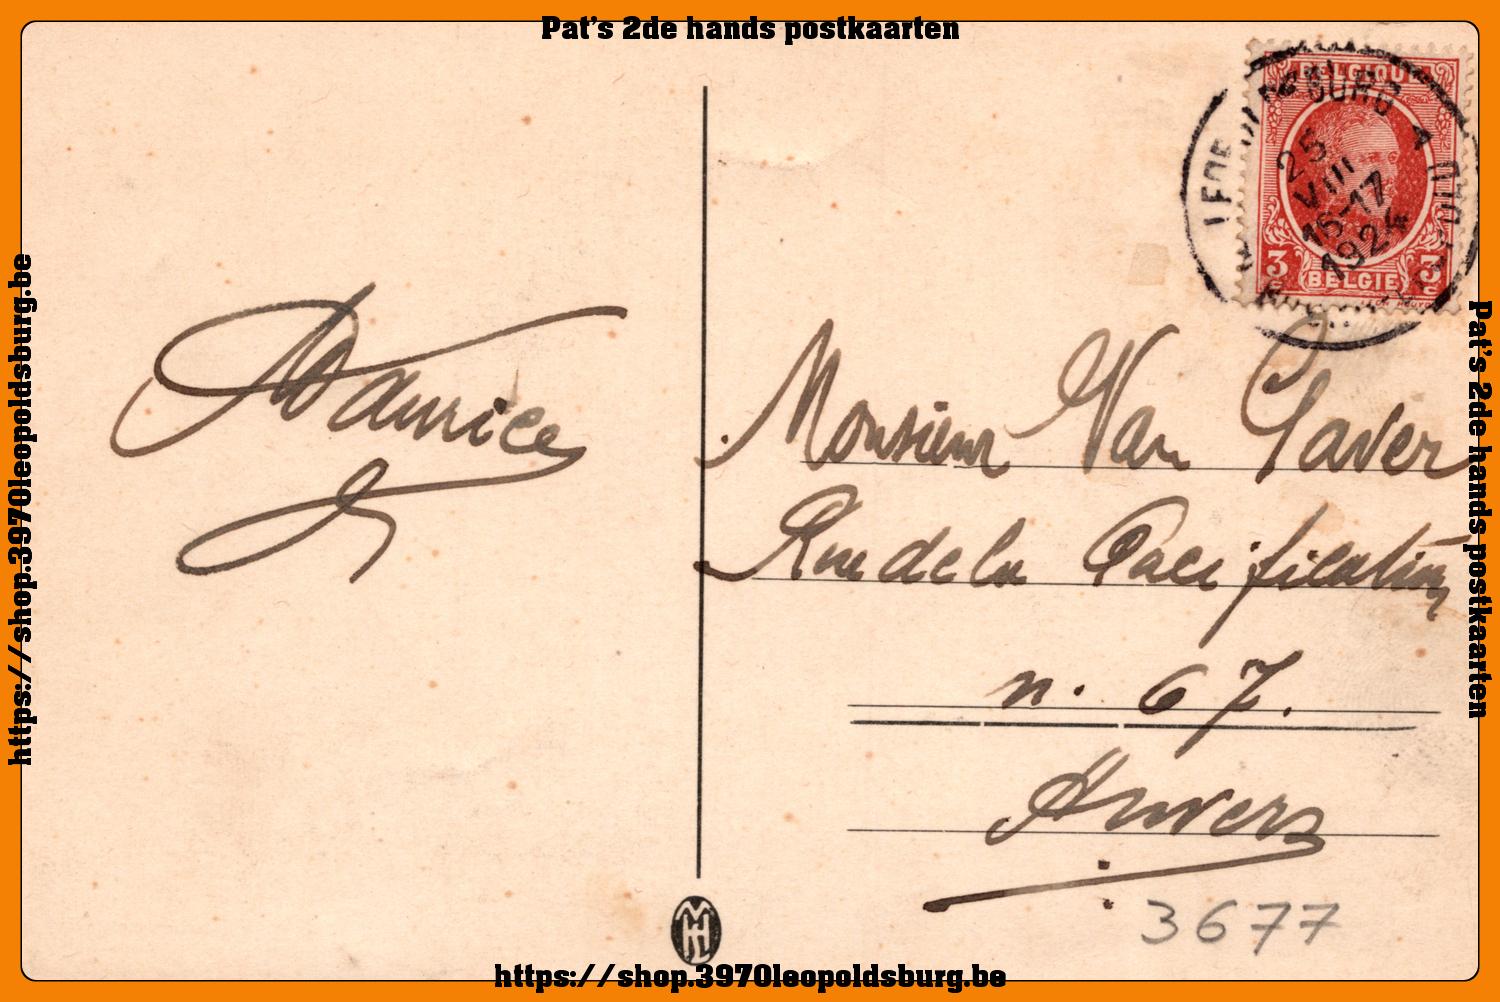 Pat's 2de hands postkaarten
BELGIQUE
25
VIII
16-17
1924
3 BELGIE 3
Maurice
Monsieur Van Gaver
Rue de la Pacification
n. 67.
Anvers
3677
https://shop.3970leopoldsburg.be
Pat's 2de hands postkaarten
https://shop.3970leopoldsburg.be